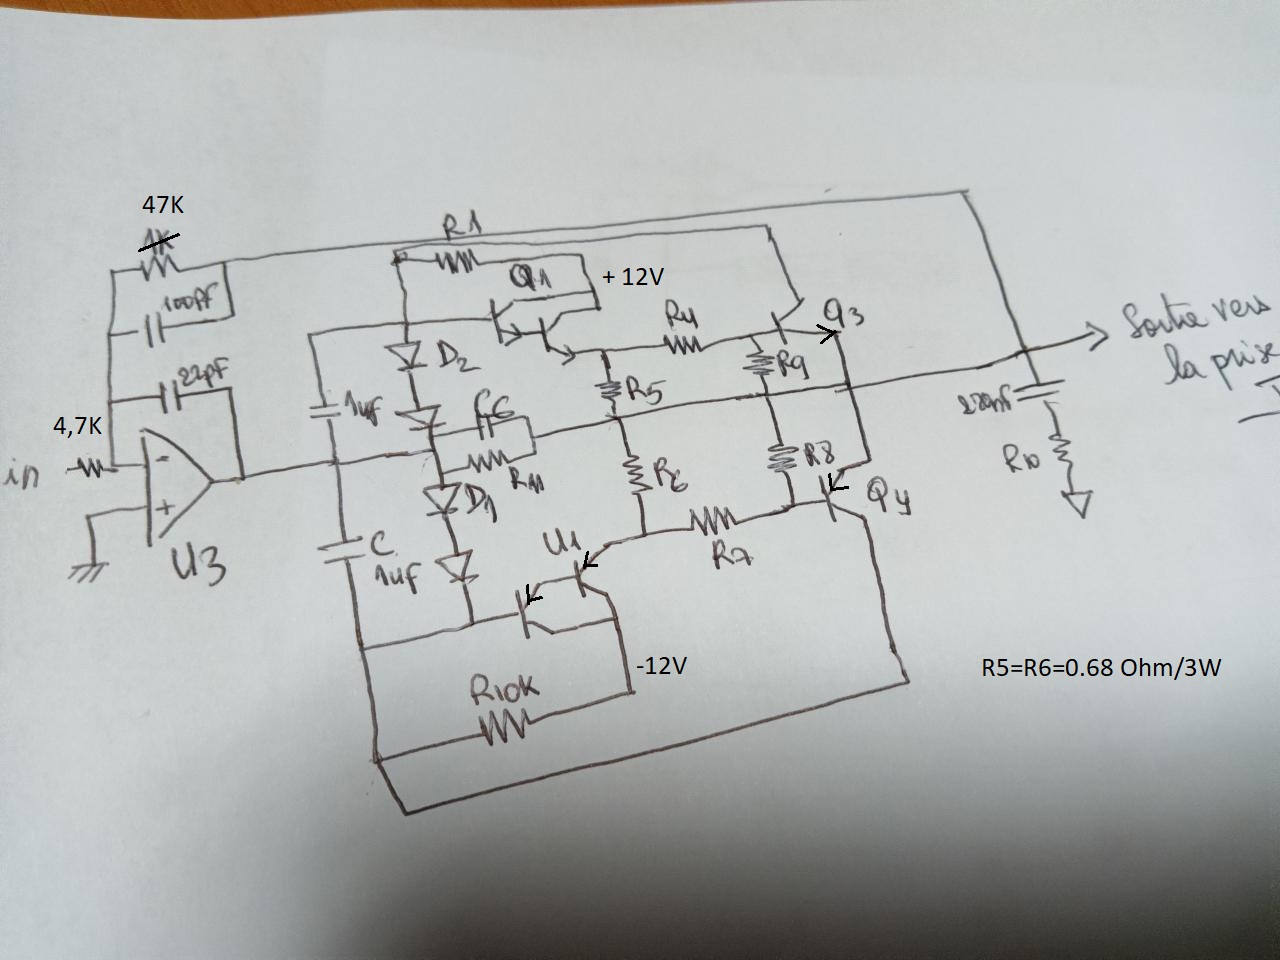 47K
1K
R1
100pF
Q1
+ 12V
R4
Q3
Sortie vers
la prise
D2
R9
22pF
1uf
C6
R5
4,7K
220nf
in
R11
R8
R6
R10
D1
Q4
U3
C
1uf
U1
R7
-12V
R5=R6=0.68 Ohm/3W
R10K